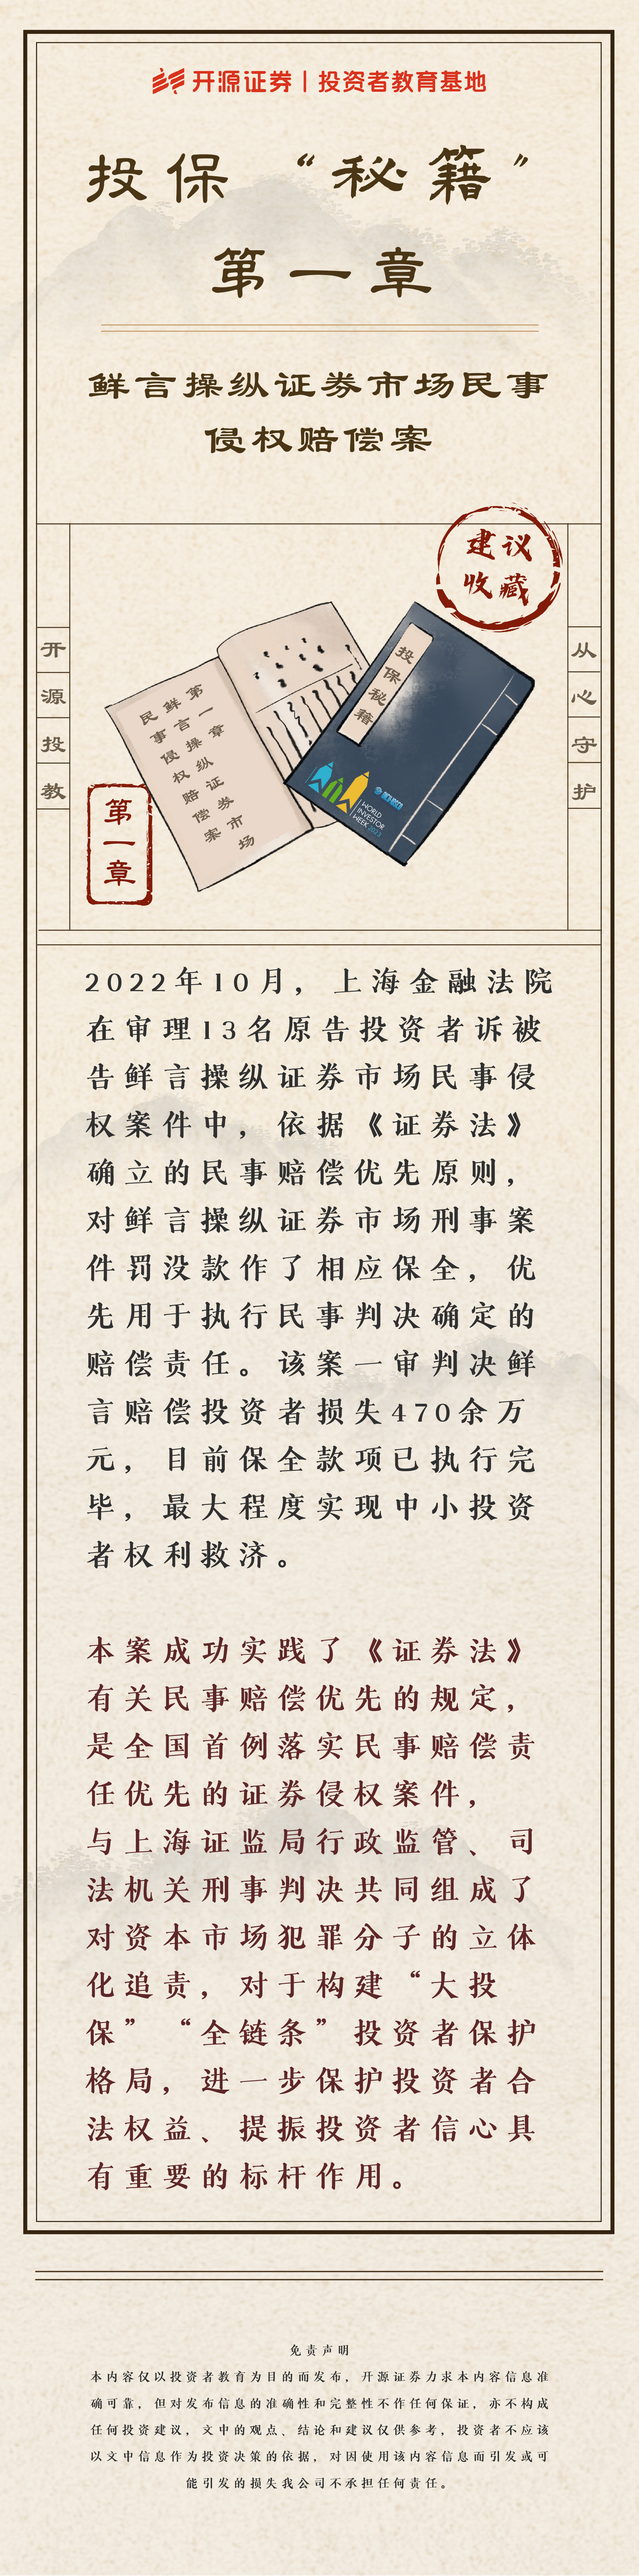 开源证券 | 投资者教育基地
投保“秘籍”
第一章
鲜言操纵证券市场民事
侵权赔偿案
建议
收藏
开源投教
从心守护
第一章
第一章操纵证券市场
鲜言侵权赔偿案
民事
投保秘籍
WORLD
INVESTOR
WEEK 2023
2022年10月，上海金融法院
在审理13名原告投资者诉被
告鲜言操纵证券市场民事侵
权案件中，依据《证券法》
确立的民事赔偿优先原则，
对鲜言操纵证券市场刑事案
件罚没款作了相应保全，优
先用于执行民事判决确定的
赔偿责任。该案一审判决鲜
言赔偿投资者损失470余万
元，目前保全款项已执行完
毕，最大程度实现中小投资
者权利救济。
本案成功实践了《证券法》
有关民事赔偿优先的规定，
是全国首例落实民事赔偿责
任优先的证券侵权案件，
与上海证监局行政监管、司
法机关刑事判决共同组成了
对资本市场犯罪分子的立体
化追责，对于构建“大投
保”“全链条”投资者保护
格局，进一步保护投资者合
法权益、提振投资者信心具
有重要的标杆作用。
免责声明
本内容仅以投资者教育为目的而发布，开源证券力求本内容信息准
确可靠，但对发布信息的准确性和完整性不作任何保证，亦不构成
任何投资建议，文中的观点、结论和建议仅供参考，投资者不应该
以文中信息作为投资决策的依据，对因使用该内容信息而引发或可
能引发的损失我公司不承担任何责任。